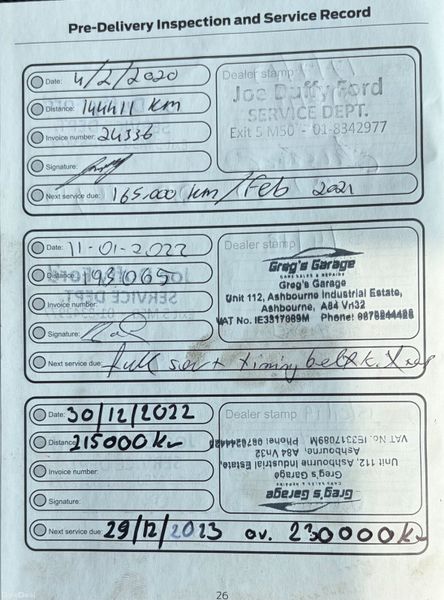 Pre-Delivery Inspection and Service Record
Date: 4/2/2020
Distance: 144411 km
Invoice number: 24336
Signature:
Next service due: 165.000 km / Feb 2021
Dealer stamp
Joe Duffy Ford
SERVICE DEPT.
Exit 5 M50 - 01-8342977
Date: 11-01-2022
Distance: 198065
Invoice number:
Signature:
Next service due: full serv + timing belt k.
Dealer stamp
Greg's Garage
CARS SALES & REPAIRS
Greg's Garage
Unit 112, Ashbourne Industrial Estate,
Ashbourne, A84 Vn32
VAT No. IE3317089M Phone: 0876244426
Date: 30/12/2022
Distance: 215000 Km
Invoice number:
Signature:
Next service due: 29/12/2023 or. 230000 Km
Dealer stamp
Greg's Garage
CARS SALES & REPAIRS
Greg's Garage
Unit 112, Ashbourne Industrial Estate,
Ashbourne, A84 Vn32
VAT No. IE3317089M Phone: 0876244426
26